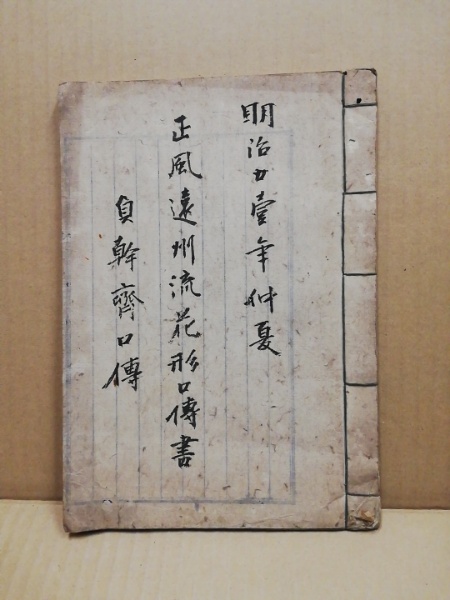 明治廿壹年仲夏
正風遠州流花形口傳書
貞幹齊口傳